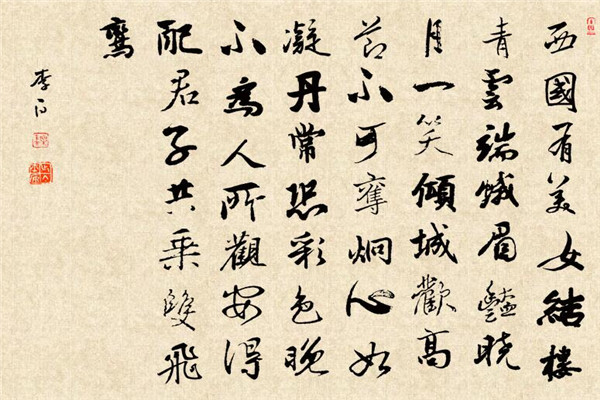 西國有美女結樓
青雲端蛾眉豔曉
月一笑傾城歡高
節不可奪炯心如
凝丹常恐彩色晚
不為人所觀安得
配君子共乘雙飛
鸞
李白